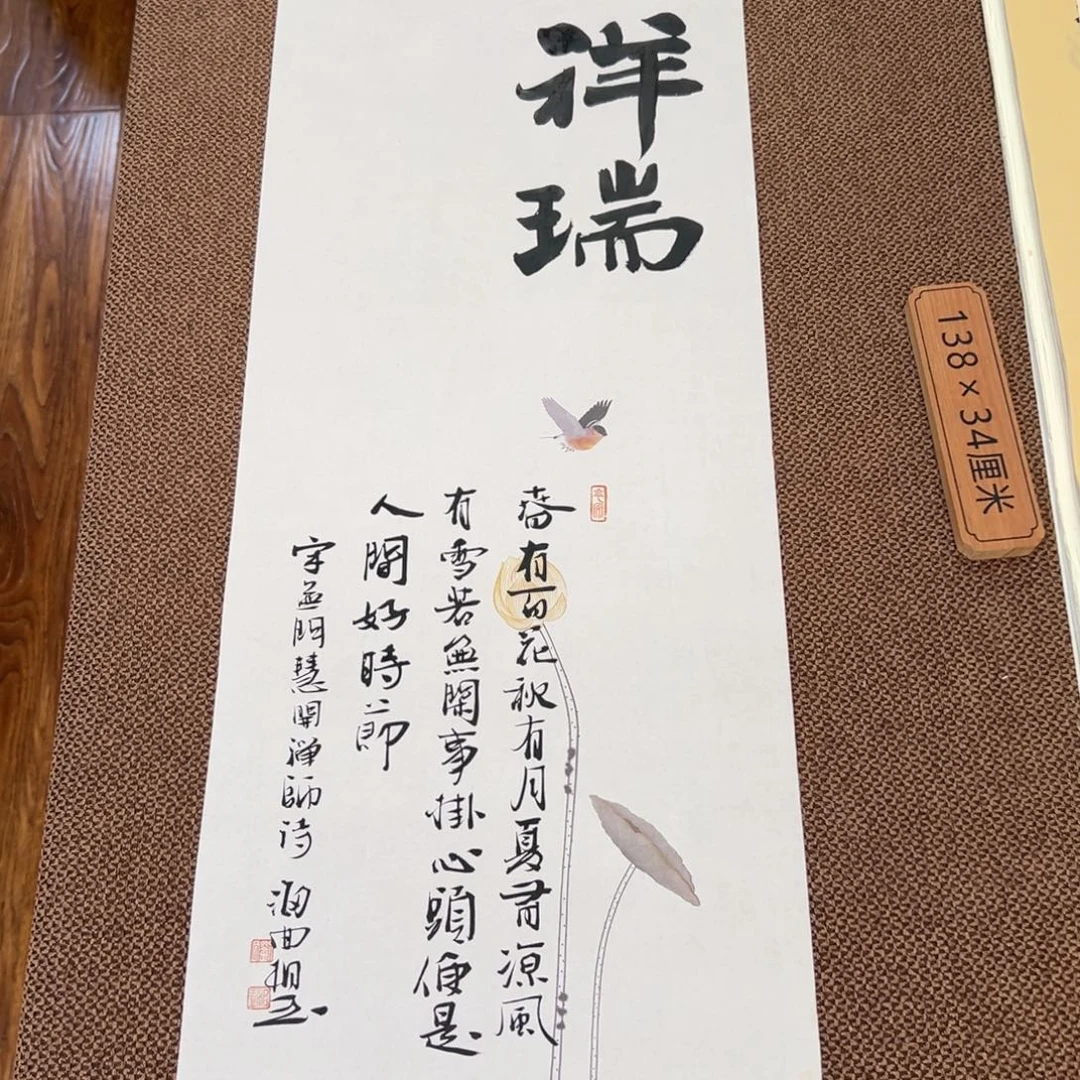 祥瑞
春有百花秋有月夏有涼風
有雪若無閑事掛心頭便是
人間好時節
宋無門慧開禅師诗 海曲
138×34厘米